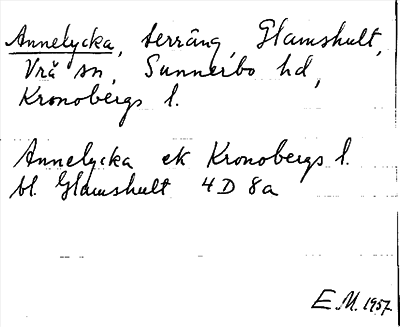 Annelycka, terräng, Glamshult,
Vrå sn, Sunnerbo hd,
Kronobergs l.
Annelycka ek Kronobergs l.
bl. Glamshult 4D 8a
E.M. 1957.